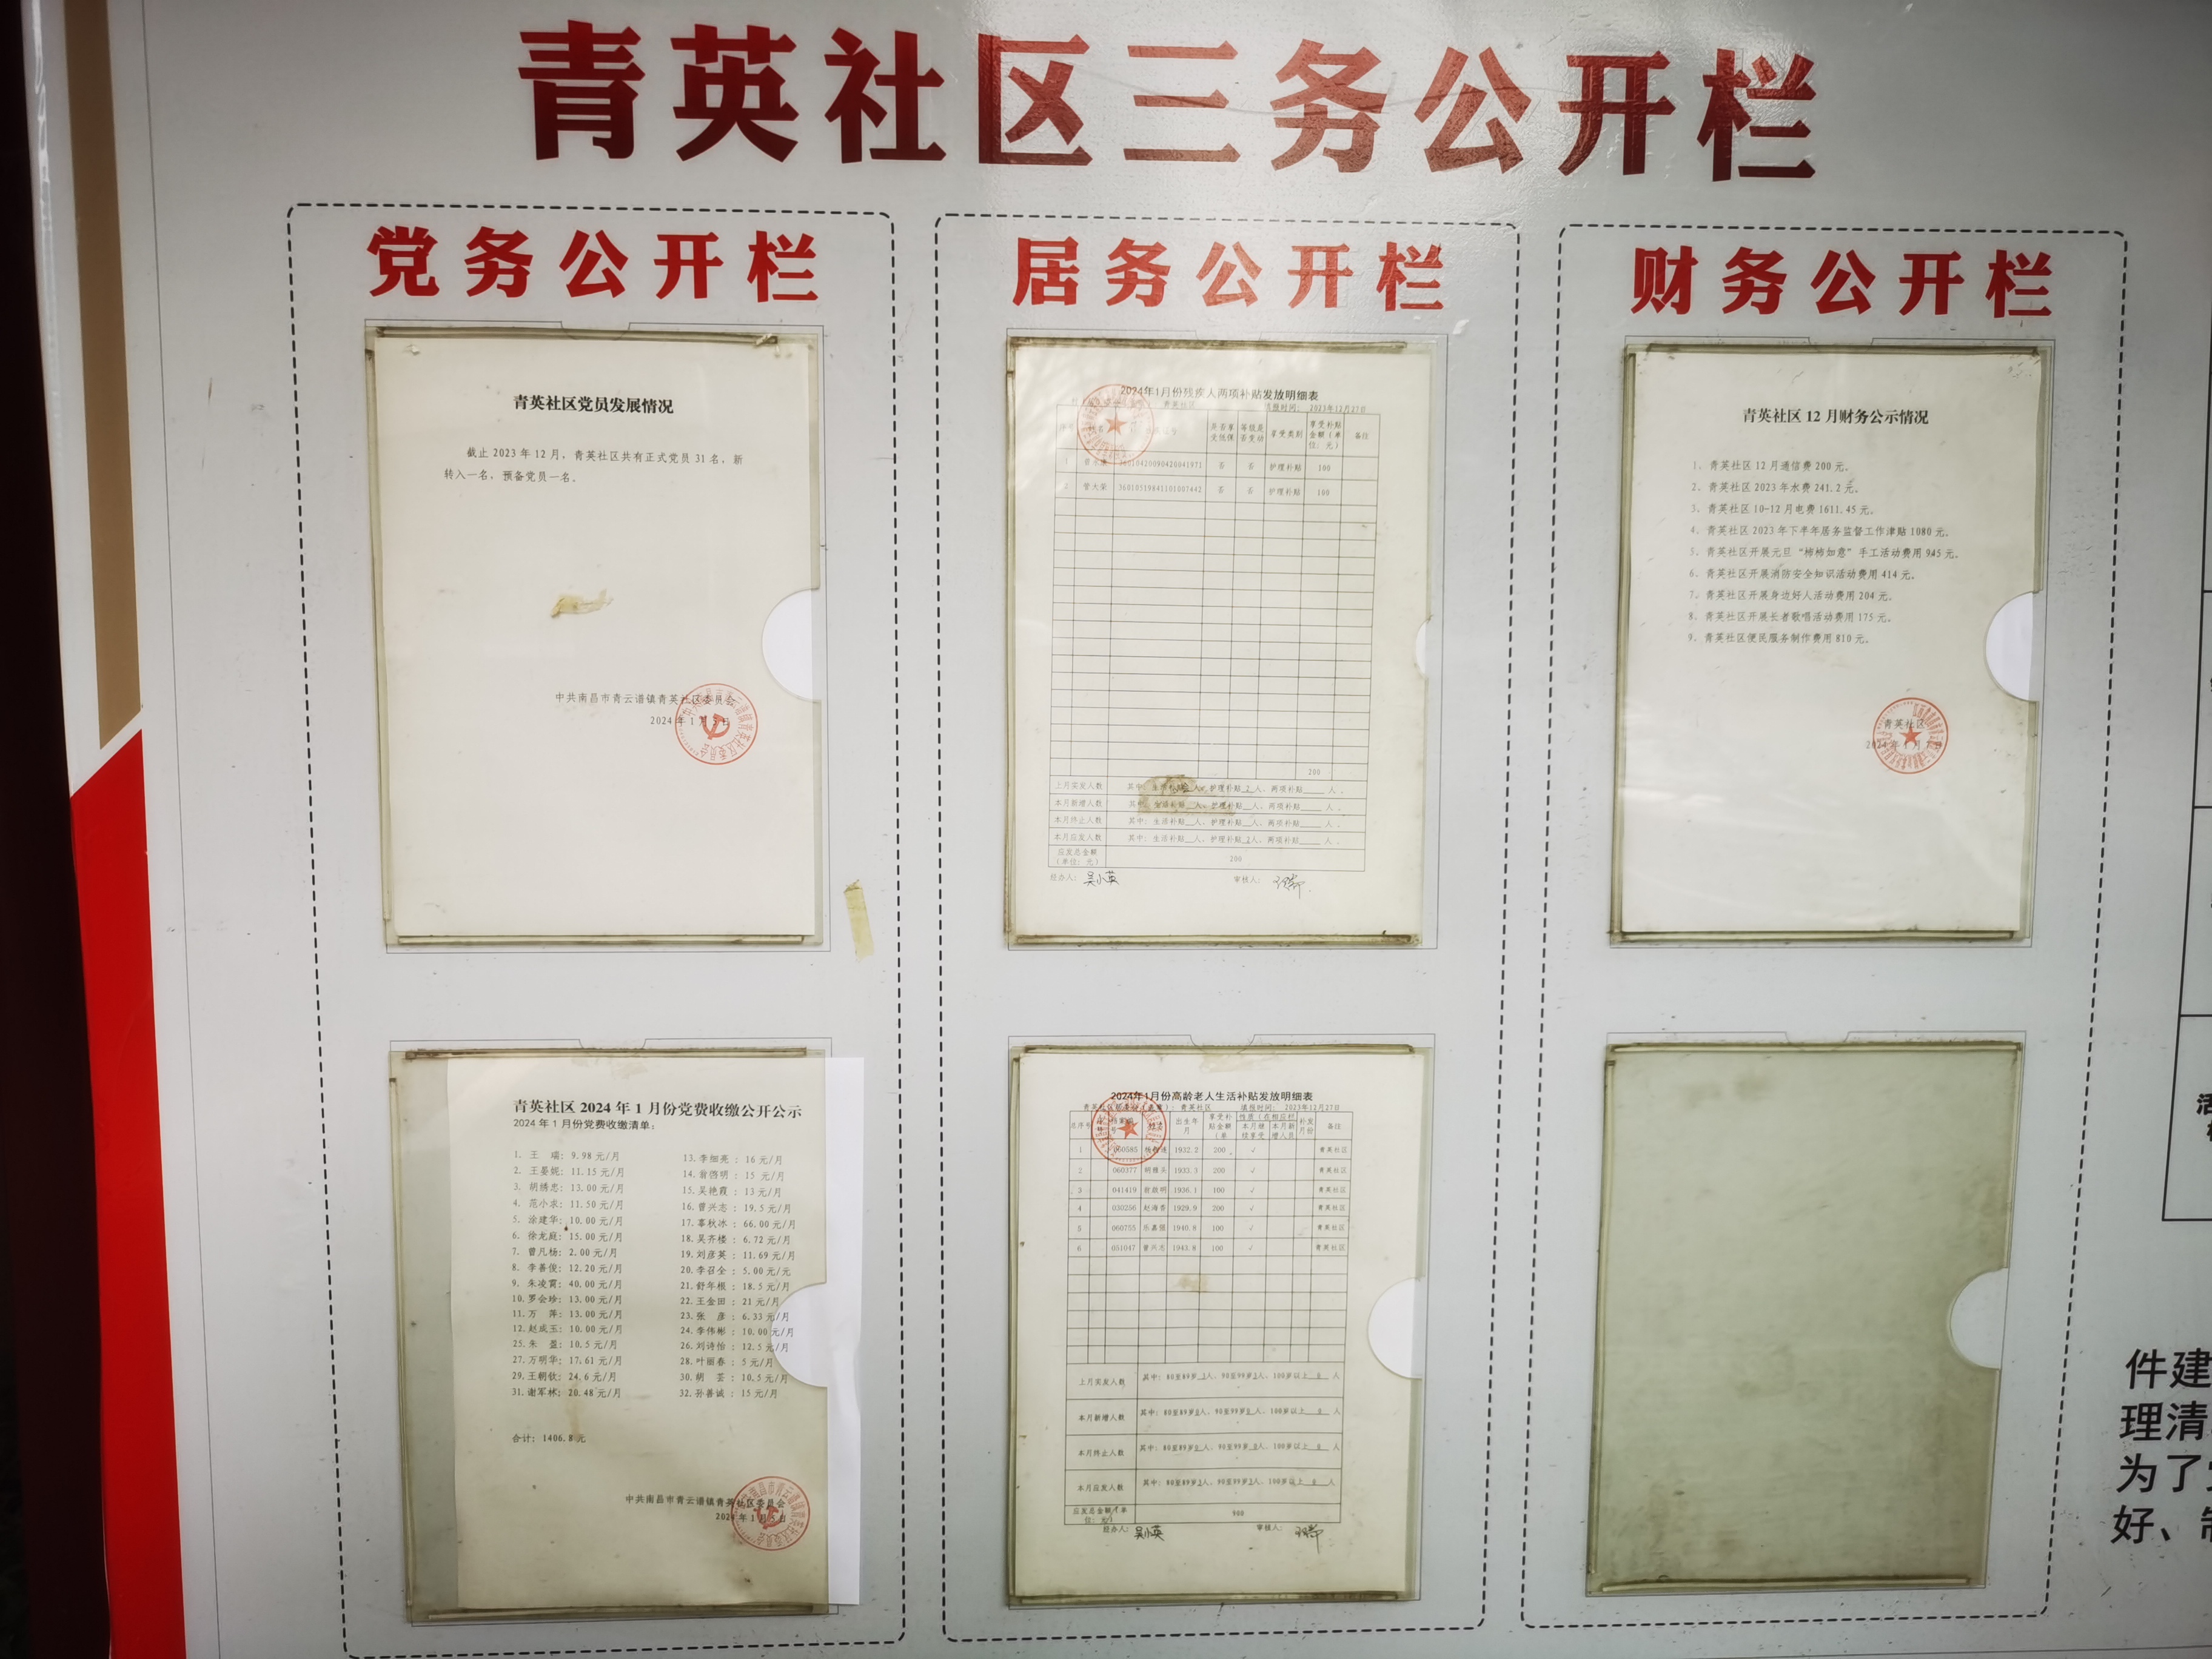 青英社区三务公开栏
党务公开栏
青英社区党员发展情况
截止 2023 年 12 月，青英社区共有正式党员 31 名，新
转入一名，预备党员一名。
中共南昌市青云谱镇青英社区委员会
2024 年 1 月 5 日
青英社区 2024 年 1 月份党费收缴公开公示
2024 年 1 月份党费收缴清单：
1. 王 瑞：9.98 元/月 13.李细亮：16 元/月
2. 王晏妮：11.15 元/月 14.翁啓明：15 元/月
3. 胡绣忠：13.00 元/月 15.吴艳霞：13 元/月
4. 范小求：11.50 元/月 16.曾兴志：19.5 元/月
5. 涂建华：10.00 元/月 17.辜秋冰：66.00 元/月
6. 徐龙庭：15.00 元/月 18.吴齐楼：6.72 元/月
7. 曾凡杨：2.00 元/月 19.刘彦英：11.69 元/月
8. 李善俊：12.20 元/月 20.李召全：5.00 元/元
9. 朱凌霄：40.00 元/月 21.舒年根：18.5 元/月
10.罗会珍：13.00 元/月 22.王金田：21 元/月
11.万 萍：13.00 元/月 23.张 彦：6.33 元/月
12.赵成玉：10.00 元/月 24.李伟彬：10.00 元/月
25.朱 盈：10.5 元/月 26.刘诗怡：12.5 元/月
27.万明华：17.61 元/月 28.叶丽春：5 元/月
29.王朝钦：24.6 元/月 30.胡 芸：10.5 元/月
31.谢军林：20.48 元/月 32.孙善诚：15 元/月
合计：1406.8 元
中共南昌市青云谱镇青英社区委员会
2024 年 1 月 5 日
居务公开栏
2024年1月份残疾人两项补贴发放明细表
青英社区 填报时间：2023年12月27日
序号 是否享受低保 等级是否变动 享受类别 享受补贴金额（单位：元） 备注
1 36010420090420041971 否 否 护理补贴 100
2 管大荣 36010519841101007442 否 否 护理补贴 100
200
上月实发人数 其中：生活补贴 人，护理补贴 2 人，两项补贴____人。
本月新增人数 其中：生活补贴__人，护理补贴__人，两项补贴____人。
本月终止人数 其中：生活补贴__人，护理补贴__人，两项补贴____人。
本月应发人数 其中：生活补贴__人，护理补贴 2人，两项补贴____人。
应发总金额（单位：元） 200
经办人：吴小英 审核人：
2024年1月份高龄老人生活补贴发放明细表
青英社区 填报时间：2023年12月27日
总序号 出生年月 享受补贴金额（单 性质（在相应栏 本月继续享受 本月新增人员 补发月份 备注
1 060585 1932.2 200 √ 青英社区
2 060377 1933.3 200 √ 青英社区
3 041419 翁啟明 1936.1 100 √ 青英社区
4 030256 赵海香 1929.9 200 √ 青英社区
5 060755 乐嘉愷 1940.8 100 √ 青英社区
6 051047 曾兴志 1943.8 100 √ 青英社区
上月实发人数 其中：80至89岁 3人，90至99岁3人，100岁以上 0 人
本月新增人数 其中：80至89岁0人，90至99岁0人，100岁以上 0 人
本月终止人数 其中：80至89岁0人，90至99岁 0人，100岁以上 0 人
本月应发人数 其中：80至89岁3人，90至99岁3人，100岁以上 0 人
应发总金额（单位：元） 900
经办人：吴小英 审核人：
财务公开栏
青英社区 12 月财务公示情况
1、青英社区 12 月通信费 200 元。
2、青英社区 2023 年水费 241.2 元。
3、青英社区 10-12 月电费 1611.45 元。
4、青英社区 2023 年下半年居务监督工作津贴 1080 元。
5、青英社区开展元旦“柿柿如意”手工活动费用 945 元。
6、青英社区开展消防安全知识活动费用 414 元。
7、青英社区开展身边好人活动费用 204 元。
8、青英社区开展长者歌唱活动费用 175 元。
9、青英社区便民服务制作费用 810 元。
青英社区
2024 年 1 月
件建
理清
为了
好、